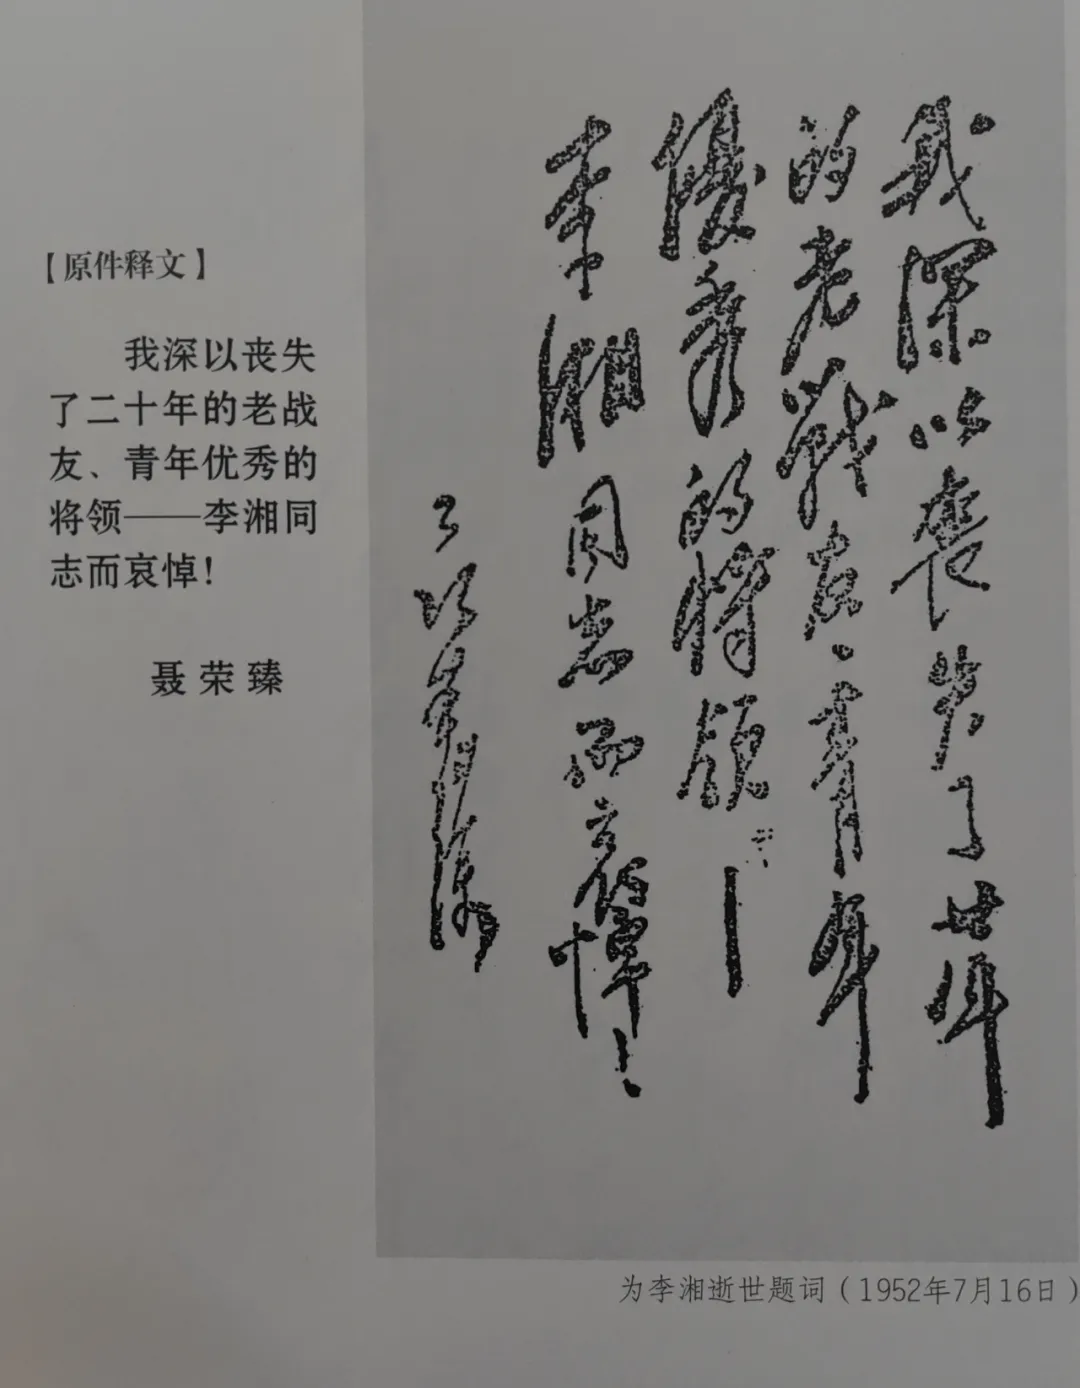 【原件释文】
我深以丧失
了二十年的老战
友、青年优秀的
将领——李湘同
志而哀悼！
聂荣臻
我深以丧失了廿年
的老战友、青年
优秀的将领——
李湘同志而哀悼！
聂荣臻
为李湘逝世题词（1952年7月16日）